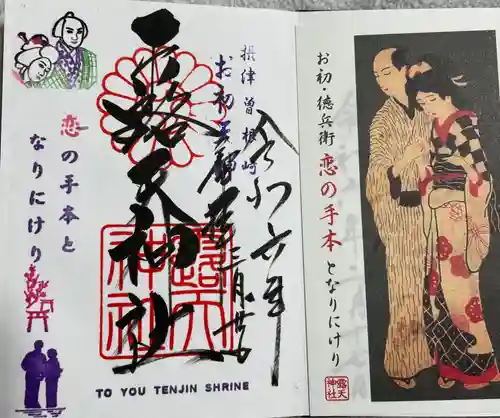 摂津曽根崎
お初天神
令和六年
三月
露天神社
露天
神社
恋の手本と
なりにけり
TO YOU TENJIN SHRINE
お初・徳兵衛
恋の手本
となりにけり
露天
神社